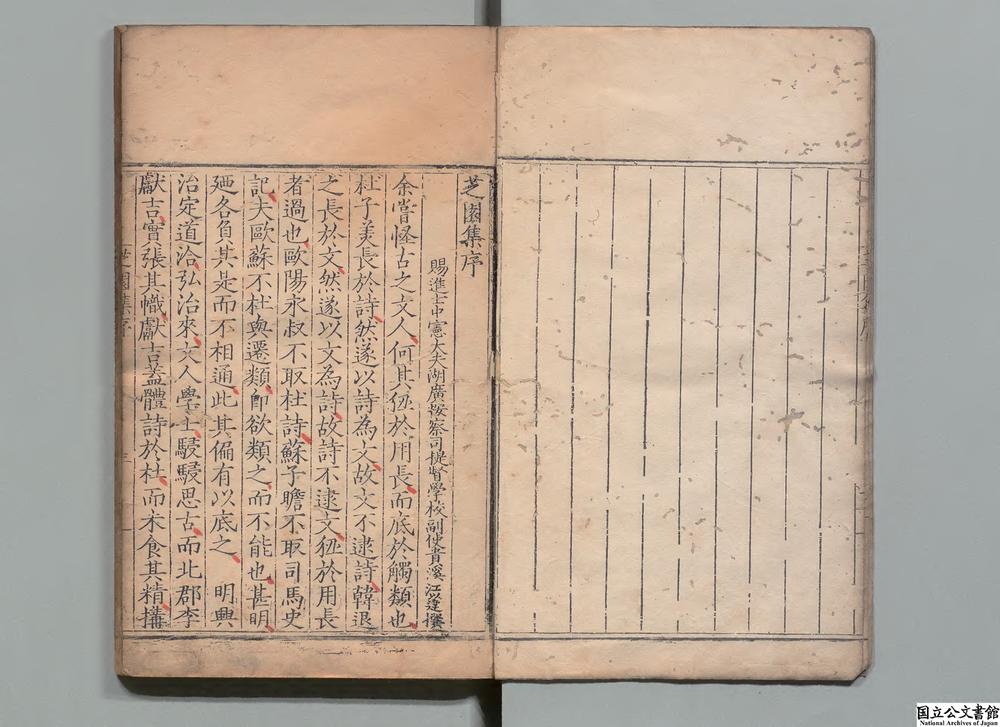 芝園集序
賜進士中憲大夫湖廣按察司提督學校副使貴溪江以達撰
余嘗怪古之文人何其狃於用長而底於觸類也
杜子美長於詩然遂以詩為文故文不逮詩韓退
之長於文然遂以文為詩故詩不逮文狃於用長
者過也歐陽永叔不取杜詩蘇子瞻不取司馬史
記夫歐蘇不杜與遷類卽欲類之而不能也甚明
廼各負其是而不相通此其偏有以底之 明興
治定道洽弘治來文人學士駸駸思古而北郡李
獻吉實張其幟獻吉蓋體詩於杜而未食其精擣
芝園集序
国立公文書館
National Archives of Japan